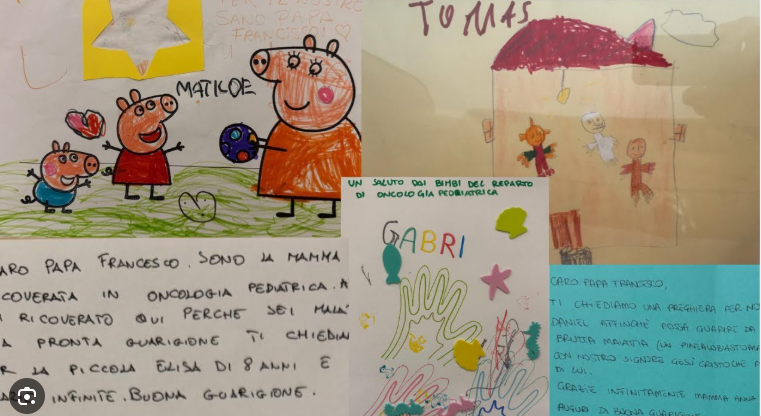 PER TE NOSTRO
SANO PAPA
FRANCESCO
MATILDE
TOMAS
UN SALUTO DAI BIMBI DEL REPARTO
DI ONCOLOGIA PEDIATRICA
GABRI
ARO PAPA FRANCESCO. SONO LA MAMMA
COVERATA IN ONCOLOGIA PEDIATRICA. A
RICOVERATO QUI PERCHE SEI MALA
A PRONTA GUARIGIONE TI CHIEDIA
R LA PICCOLA ELISA DI 8 ANNI E
INFINITE. BUONA GUARIGIONE.
CARO PAPA FRANCESCO,
TI CHIEDIAMO UNA PREGHIERA PER NO
DANIEL AFFINCHÈ POSSA GUARIRE DA
BRUTTA MALATTIA (UN PINEALOBLASTOMA
CON NOSTRO SIGNORE GESÙ CRISTO CHE A
DI LUI.
GRAZIE INFINITAMENTE MAMMA ANNA
AUGURI DI BUONA GUARIGIONE